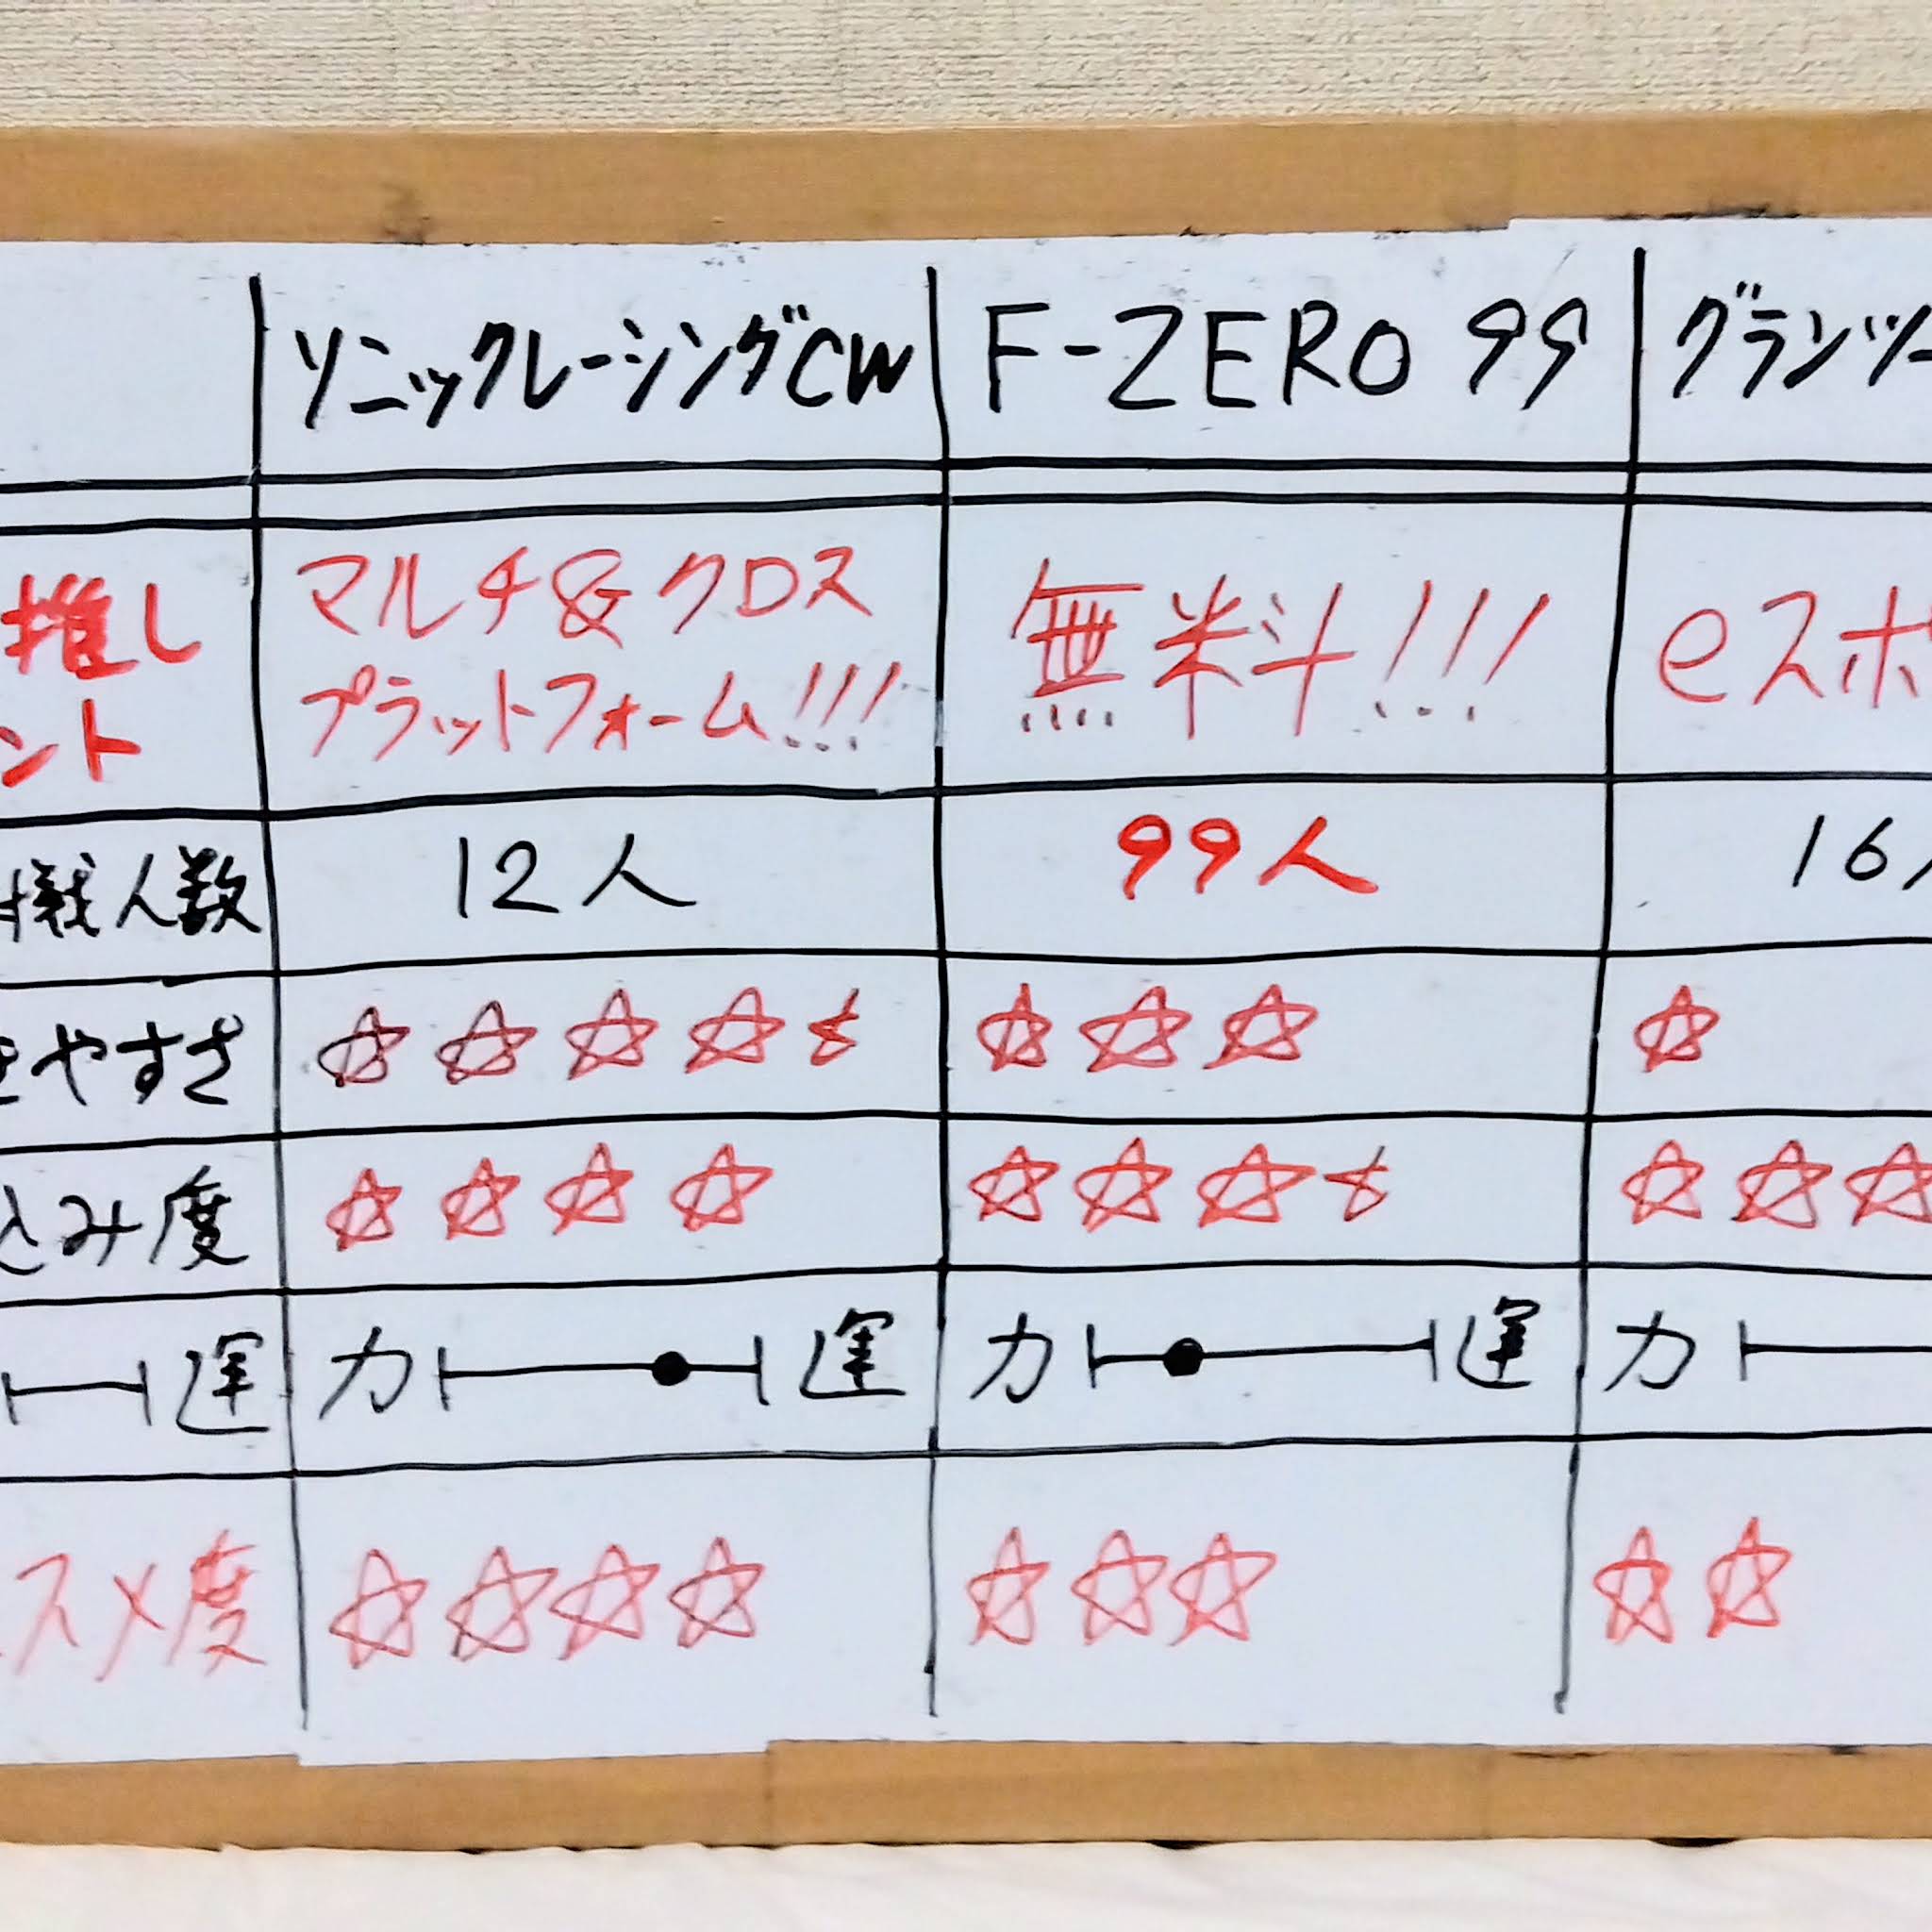 ソニックレーシングCW F-ZERO 99 グランツー
推し マルチ&クロス 無料!!! eスポ
ント プラットフォーム!!!
対戦人数 12人 99人 16人
やすさ ☆☆☆☆ ☆☆☆ ☆
込み度 ☆☆☆☆ ☆☆☆ ☆☆☆
運 力 運 力 運 力
スメ度 ☆☆☆☆ ☆☆☆ ☆☆